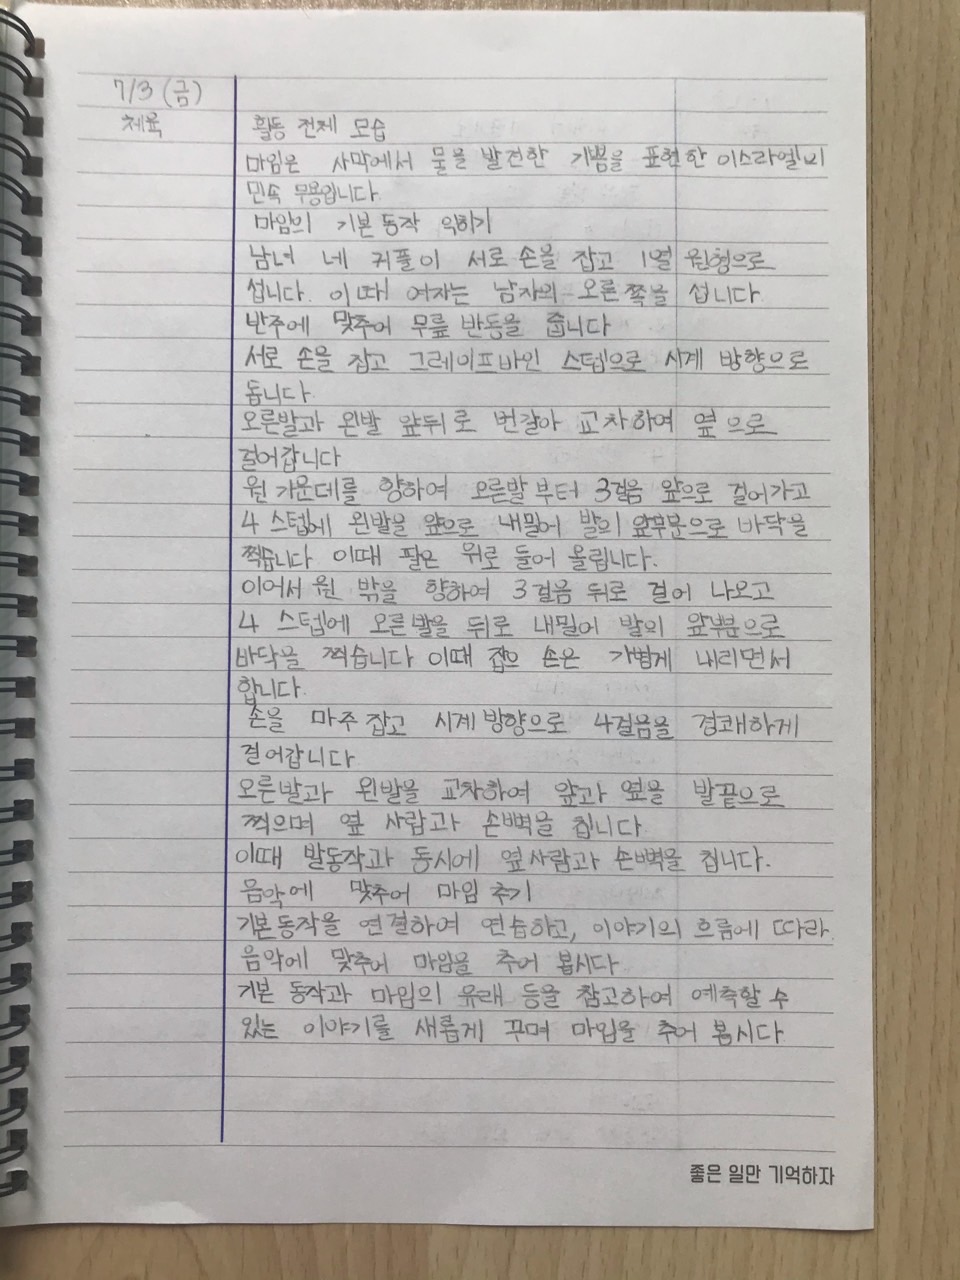 7/3 (금)
체육
활동 전체 모습
마임은 사막에서 물을 발견한 기쁨을 표현한 이스라엘비
민속 무용입니다.
마임의 기본 동작 익히기
남녀 네 커플이 서로 손을 잡고 1열 원형으로
섭니다. 이때 여자는 남자의 오른쪽을 섭니다.
반주에 맞추어 무릎 반동을 줍니다
서로 손을 잡고 그레이프바인 스텝으로 시계 방향으로
돕니다.
오른발과 왼발 앞뒤로 번갈아 교차하여 옆으로
걸어갑니다
원 가운데를 향하여 오른발부터 3걸음 앞으로 걸어가고
4 스텝에 왼발을 앞으로 내밀어 발의 앞부분으로 바닥을
찍습니다 이때 팔은 위로 들어 올립니다.
이어서 원 밖을 향하여 3걸음 뒤로 걸어 나오고
4 스텝에 오른발을 뒤로 내밀어 발의 앞부분으로
바닥을 찍습니다 이때 잡으 손은 가볍게 내리면서
합니다.
손을 마주 잡고 시계방향으로 4걸음을 경쾌하게
걸어갑니다
오른발과 왼발을 교차하여 앞과 옆을 발끝으로
찍으며 옆 사람과 손뼉을 칩니다.
이때 발동작과 동시에 옆사람과 손뼉을 칩니다.
음악에 맞추어 마임 추기
기본동작을 연결하여 연습하고, 이야기의 흐름에 따라
음악에 맞추어 마임을 추어 봅시다
기본 동작과 마임의 유래 등을 참고하여 예측할 수
있는 이야기를 새롭게 꾸며 마임을 추어 봅시다
좋은 일만 기억하자